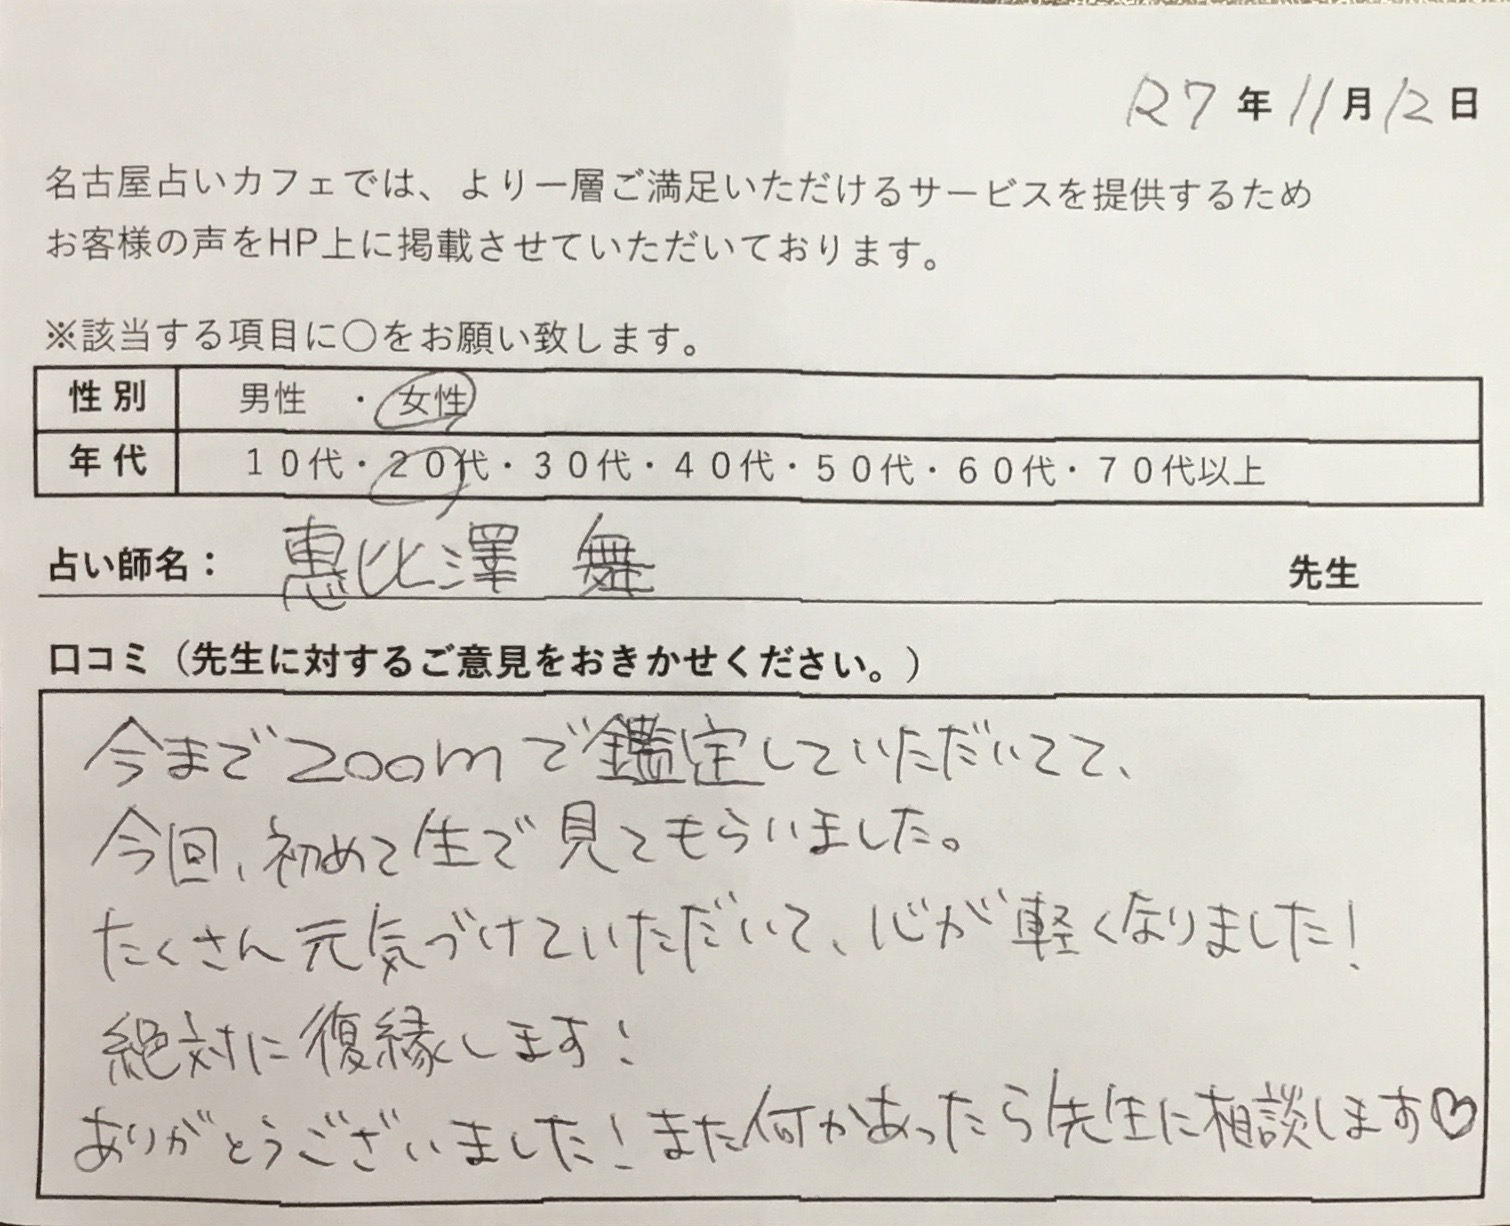 R7年11月12日
名古屋占いカフェでは、より一層ご満足いただけるサービスを提供するため
お客様の声をHP上に掲載させていただいております。
※該当する項目に〇をお願い致します。
性別 男性 ・ 女性
年代 10代・20代・30代・40代・50代・60代・70代以上
占い師名： 恵比澤 舞 先生
口コミ（先生に対するご意見をおきかせください。）
今までzoomで鑑定していただいてて、
今回、初めて生で見てもらいました。
たくさん元気づけていただいて、心が軽くなりました！
絶対に復縁します！
ありがとうございました！また何かあったら先生に相談します♡